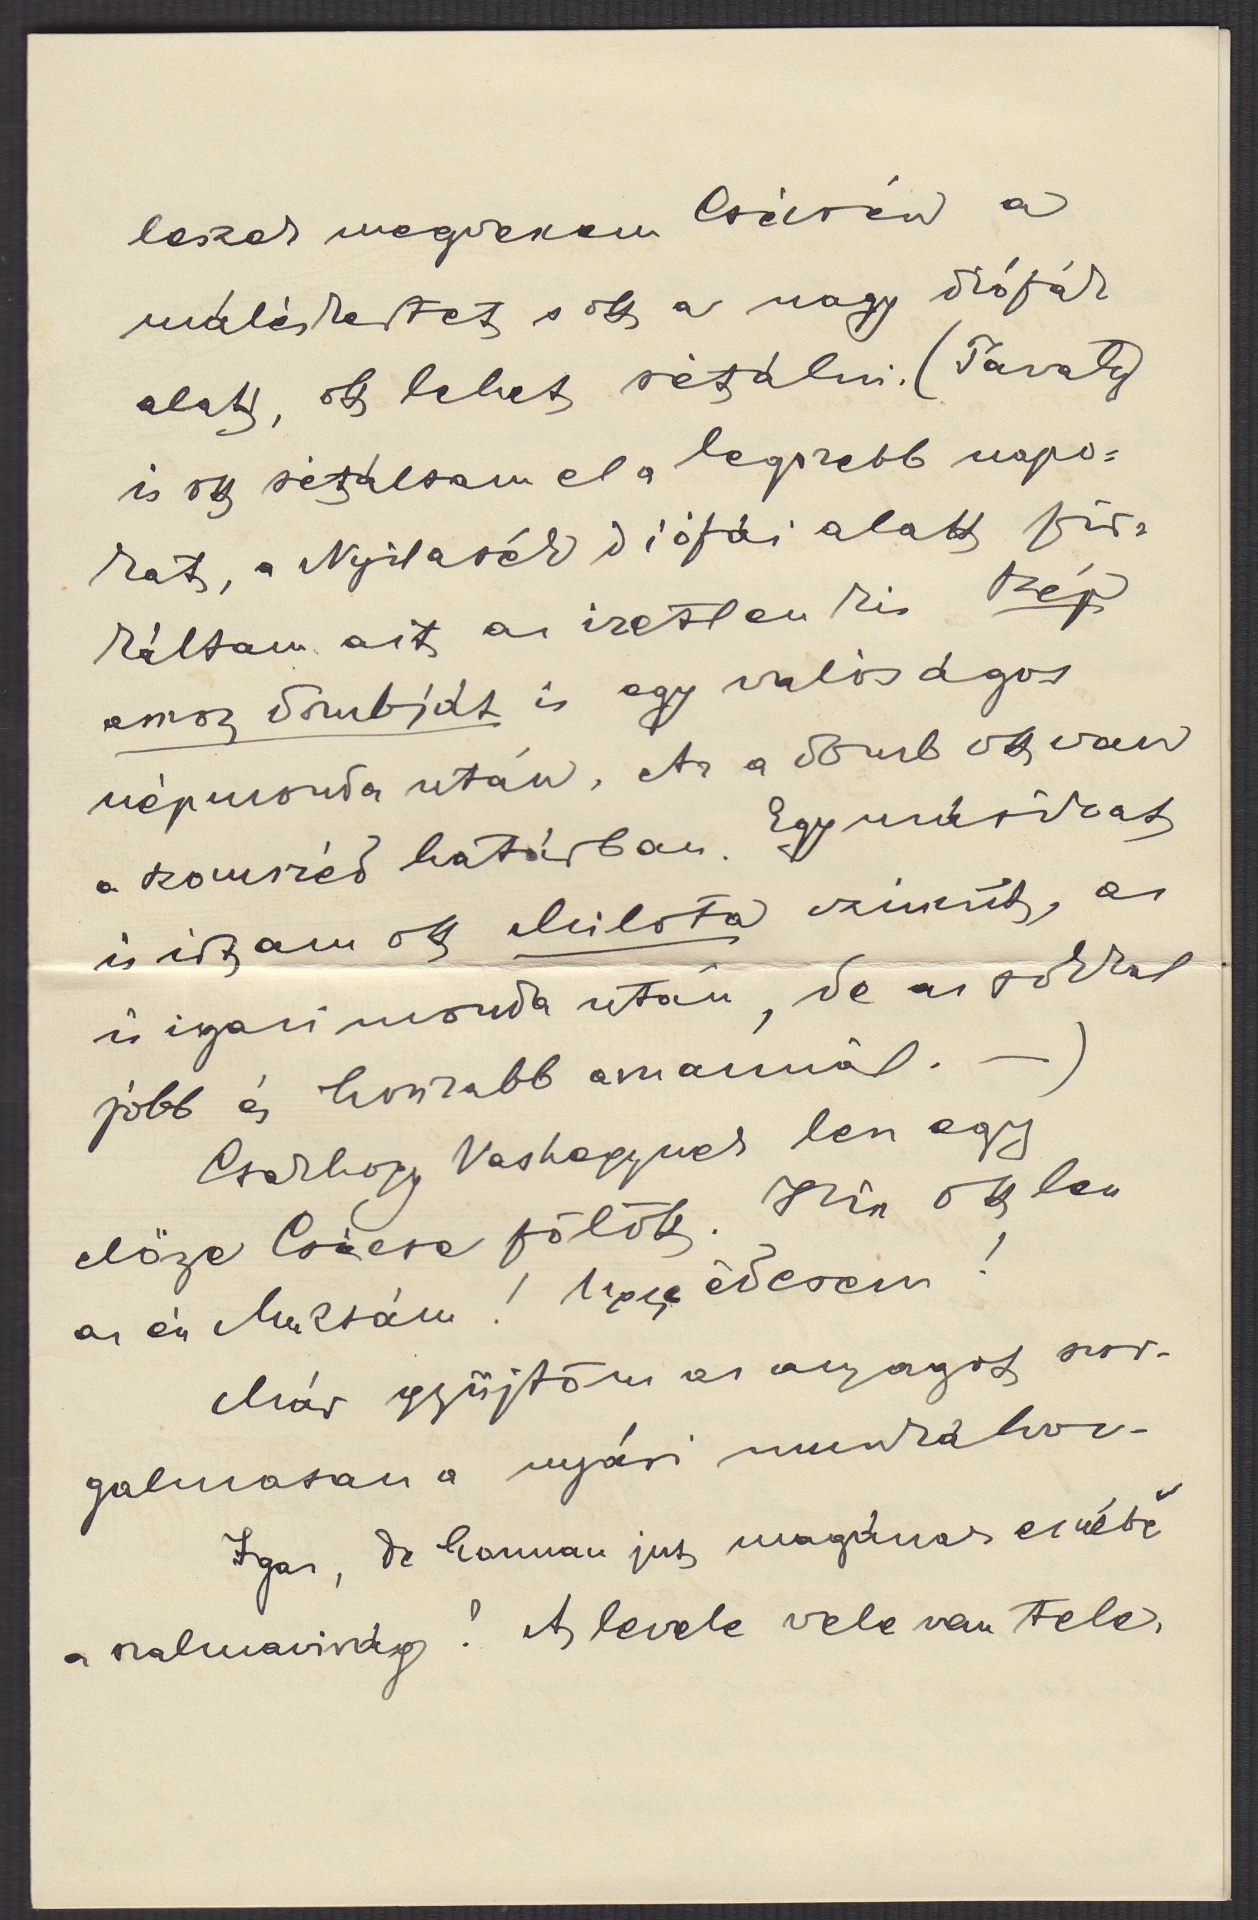 leszek megveszem Csécsén a
máléskertet s ott a nagy diófák
alatt, ott lehet sétálni. (Tavaly
is ott sétáltam el a legszebb napo=
kat, a Nyilasék diófái alatt fir=
káltam azt az izetlen kis Szép
asszony dombját is egy valóságos
népmonda után. Az a domb ott van
a szomszéd határban. Egy másikat
is irtam ott Milota czimüt, az
is igazi monda után, de az sokkal
jobb és hosszabb amannál. —)
Csakhogy Vashegynek lesz egy
előze Csécse fölött. Kin ott lesz
az én Muzsám! Ugye édesem!
Már gyüjtöm az anyagot szor-
galmasan a nyári munkához-
Igaz, de honnan jut magának eszébe
a szalmavirág! A levele vele van tele,